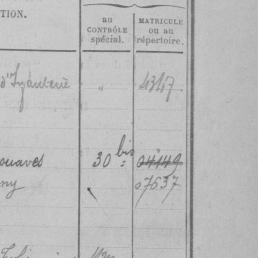 TION.
au
CONTRÔLE
spécial.
MATRICULE
ou au
répertoire.
d'Infanterie " 4347
ouaves 30 bis 04149
ny 07537